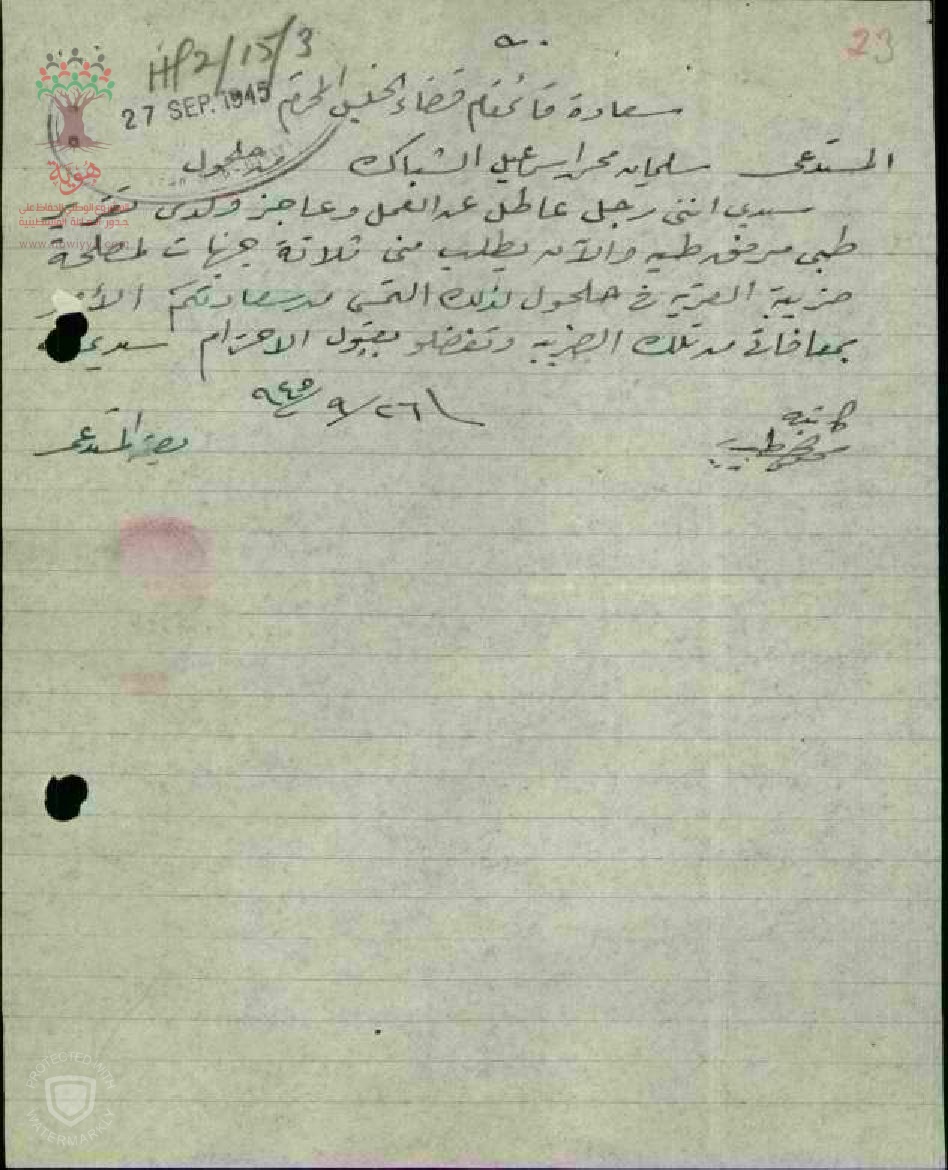 23
HP2/15/3
27 SEP. 1945
سعادة قائمقام قضاء الخليل المحترم
المستدعي سليمان محمد اسماعيل الشباك من حلحول
سيدي انني رجل عاطل عن العمل وعاجز ولدي تقرير
طبي مرفق طيه والآن يطلب مني ثلاثة جنيهات لمصلحة
ضريبة القرية في حلحول لذلك التمس من سعادتكم الأمر
بمعافاتي من تلك الضريبه وتفضلو بقبول الاحترام سيدي
٢٦/٩/٩٤٥
كاتبه
بصمة المستدعي
هوية
المشروع الوطني للحفاظ على
جذور العائلة الفلسطينية
www.howiyya.com
PROTECTED WITH
WATERMARKLY